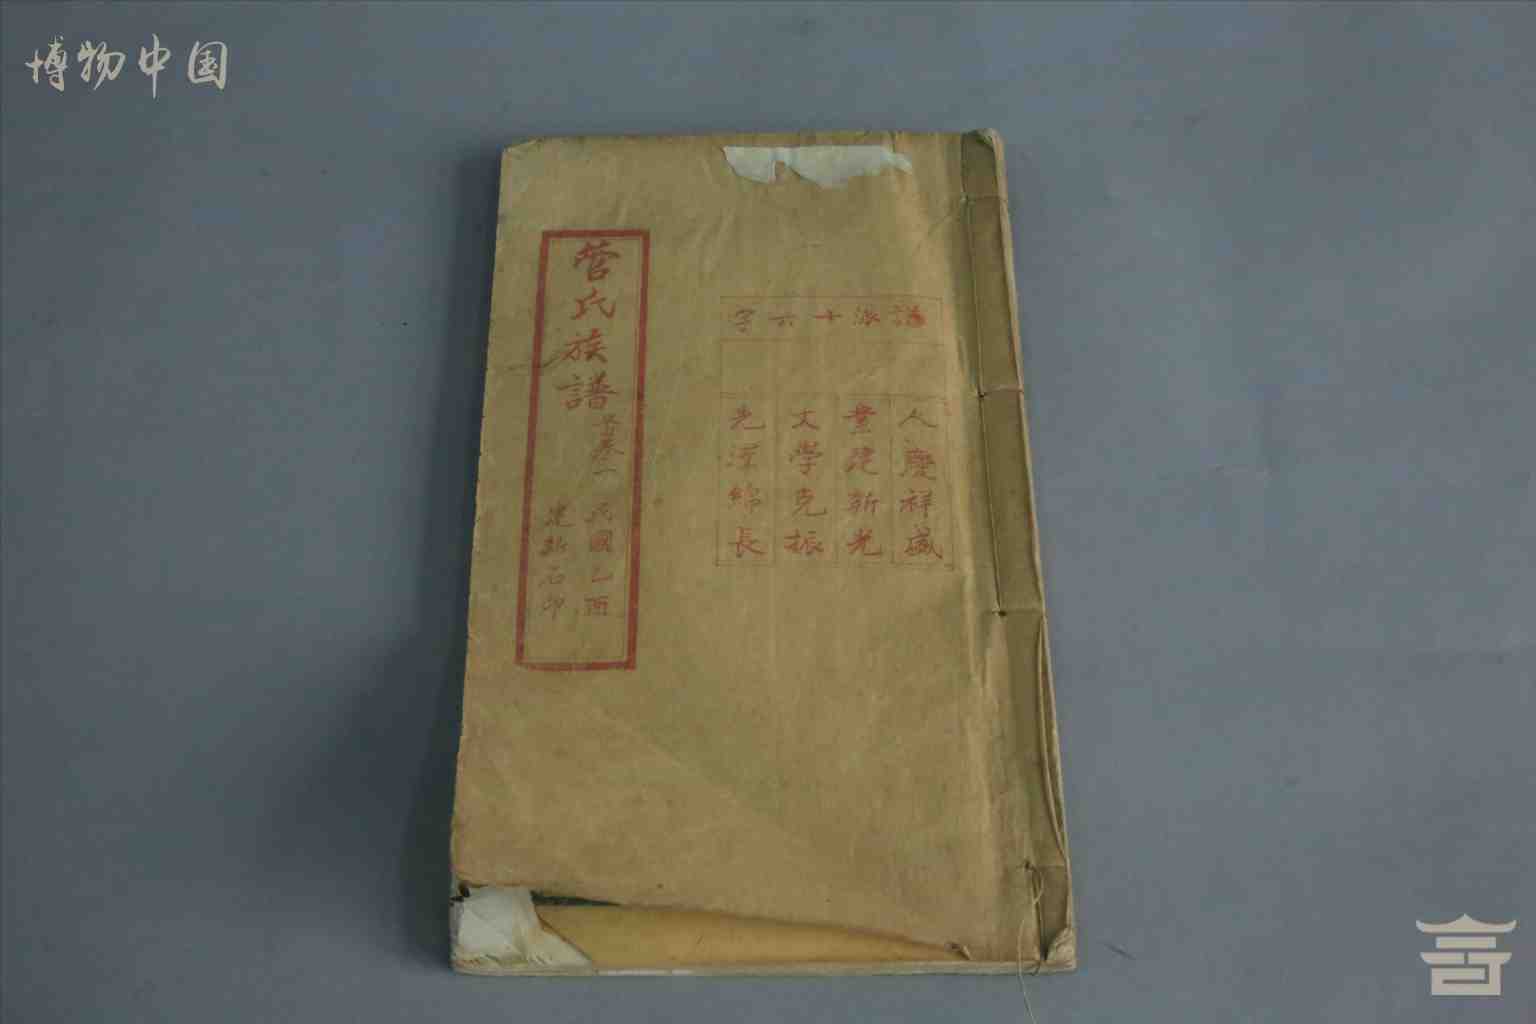 博物中国
譜派十六字
人慶祥盛
業建新光
文學克振
先澤綿長
管氏族譜
卷一
民國乙酉
建新石印